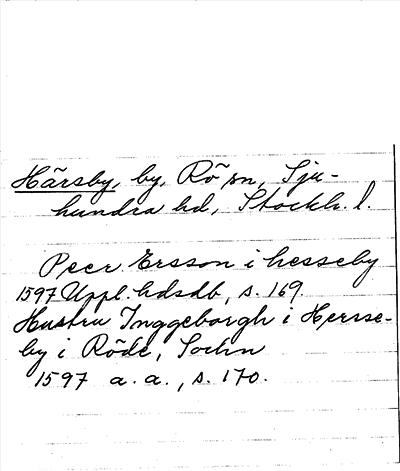 Härsby, by, Rö sn, Sju-
hundra hd, Stockh. l.
Peer Ersson i hesseby
1597 Uppl. hdsdb, s. 169.
Hustru Inggeborgh i Hersse-
by i Röde, Sochn
1597 a. a., s. 170.